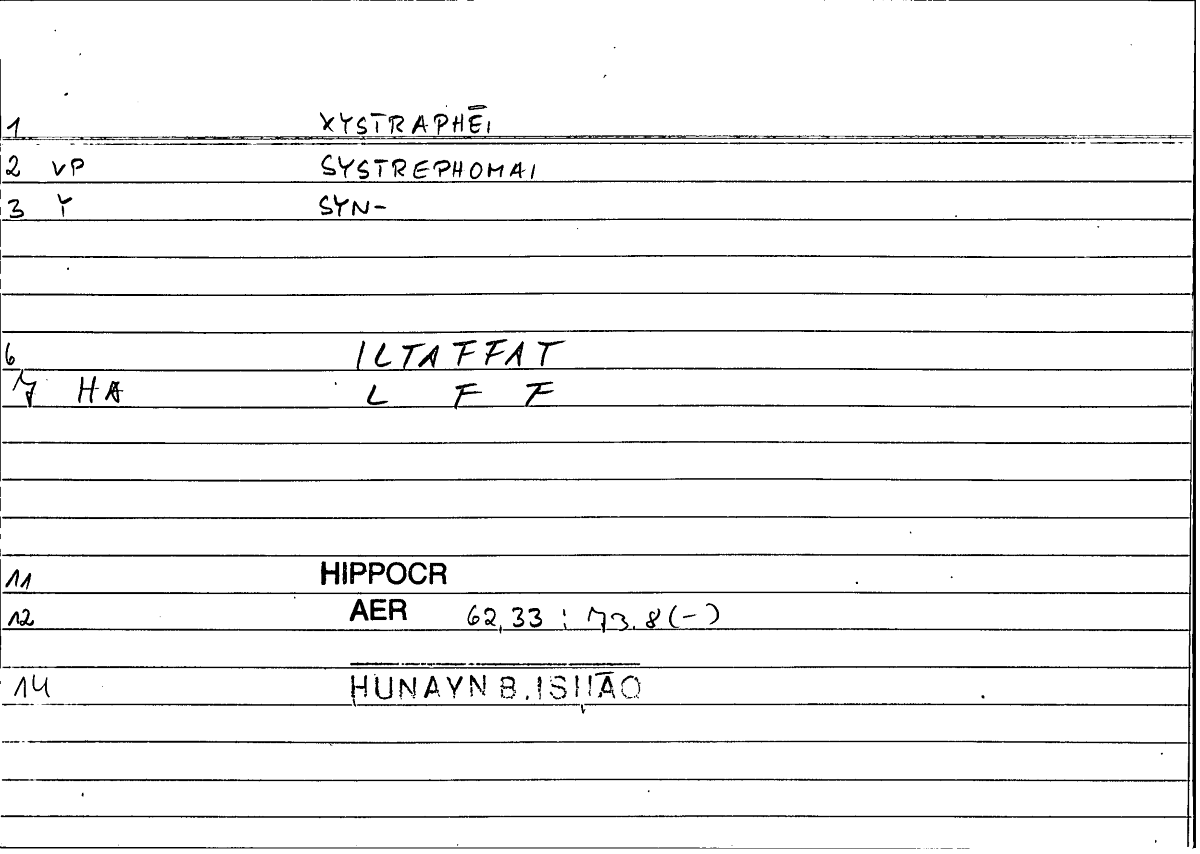 1 XYSTRAPHĒI
2 VP SYSTREPHOMAI
3 Y SYN-
6 ILTAFFAT
7 HA L F F
11 HIPPOCR
12 AER 62,33 : 73.8(-)
14 HUNAYN B. ISḤĀQ